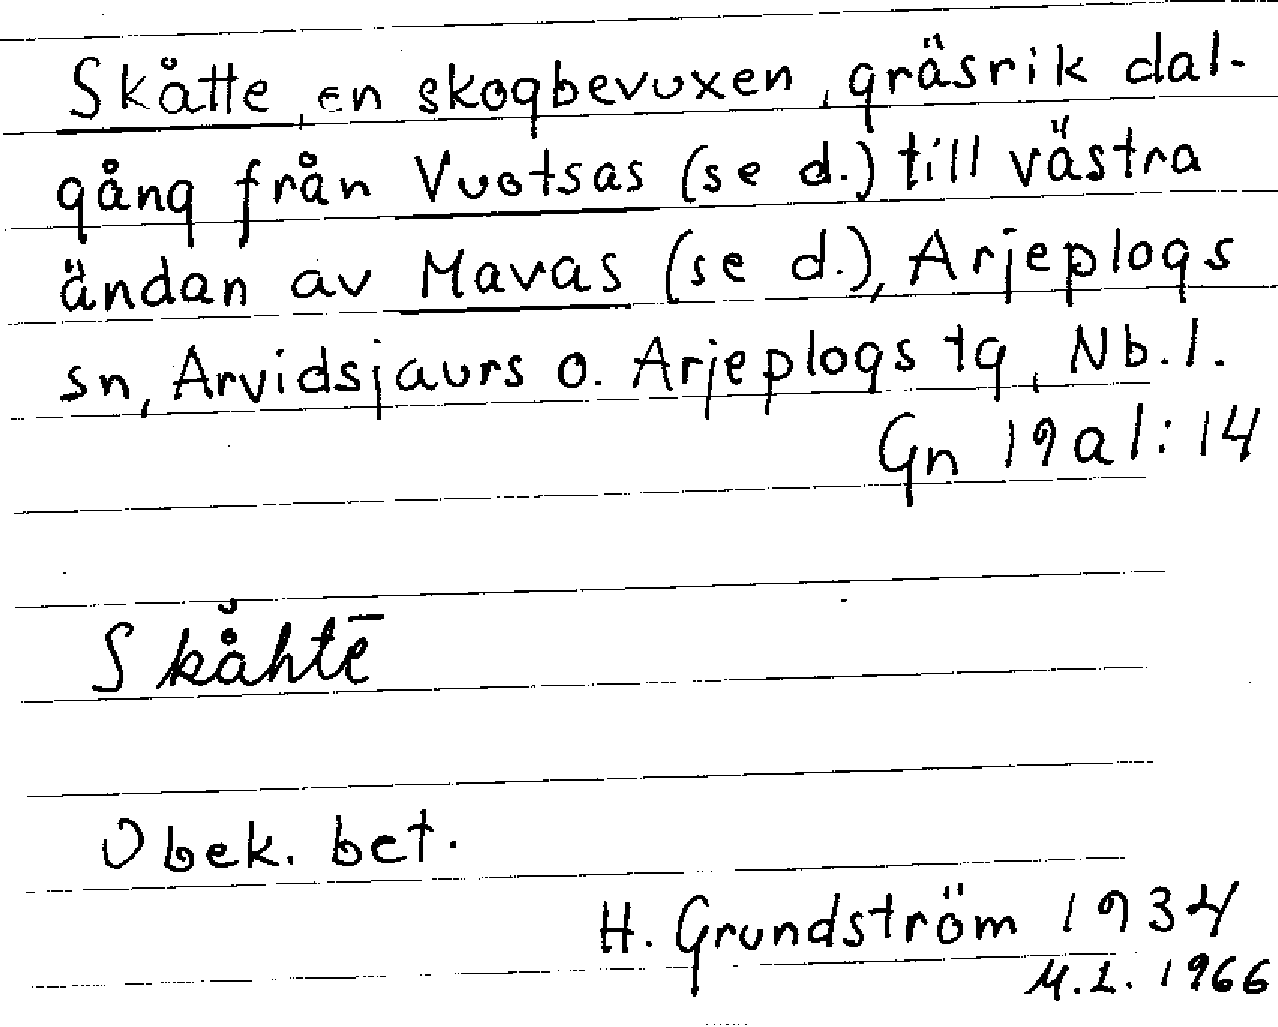 Skåtte, en skogbevuxen, gräsrik dal-
gång från Vuotsas (se d.) till västra
ändan av Mavas (se d.), Arjeplogs
sn, Arvidsjaurs o. Arjeplogs tg, Nb. l.
Gn 19a1:14
Skå̆htē
Obek. bet.
H. Grundström 1934
M.L. 1966